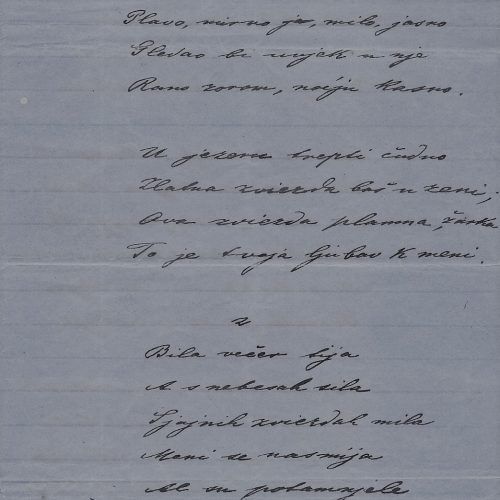 Plavo, mirno je, milo, jasno
Gledao bi uvjek u nje
Rano zorom, noćju kasno.
U jezeru trepti čudno
Zlatna zviezda baš u zeni,
Ova zviezda plamna, žarka
To je tvoja ljubav k meni.
2
Bila večer sija
A s nebesah sila
Sjajnih zviezdah mila
Meni se nasmija
Al su potamnjele